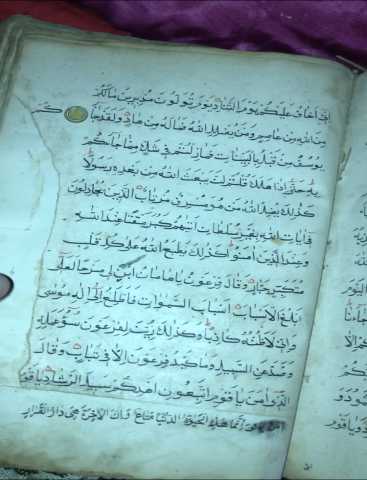 إني أخاف عليكم يوم التناد يوم تولون مدبرين مالكم
من الله من عاصم ومن يضلل الله فما له من هاد ولقد جاءكم
يوسف من قبل بالبينات فما زلتم في شك مما جاءكم
به حتى إذا هلك قلتم لن يبعث الله من بعده رسولا
كذلك يضل الله من هو مسرف مرتاب الذين يجادلون
في آيات الله بغير سلطان أتيهم كبر مقتا عند الله
وعند الذين آمنوا كذلك يطبع الله على كل قلب
متكبر جبار وقال فرعون يا هامان ابن لي صرحا لعلي
أبلغ الأسباب أسباب السموات فأطلع إلى إله موسى
وإني لأظنه كاذبا وكذلك زين لفرعون سوء عمله
وصد عن السبيل وما كيد فرعون إلا في تباب وقال
الذي آمن يا قوم اتبعون أهدكم سبيل الرشاد يا قوم
إنما هذه الحيوة الدنيا متاع وإن الآخرة هي دار القرار